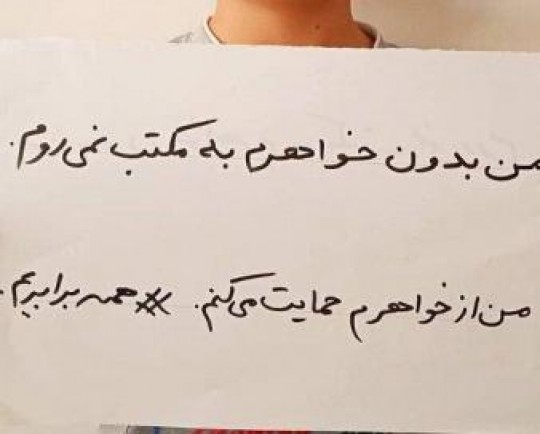 من بدون خواهرم به مکتب نمی‌روم.
من از خواهرم حمایت می‌کنم. #همه برابریم.